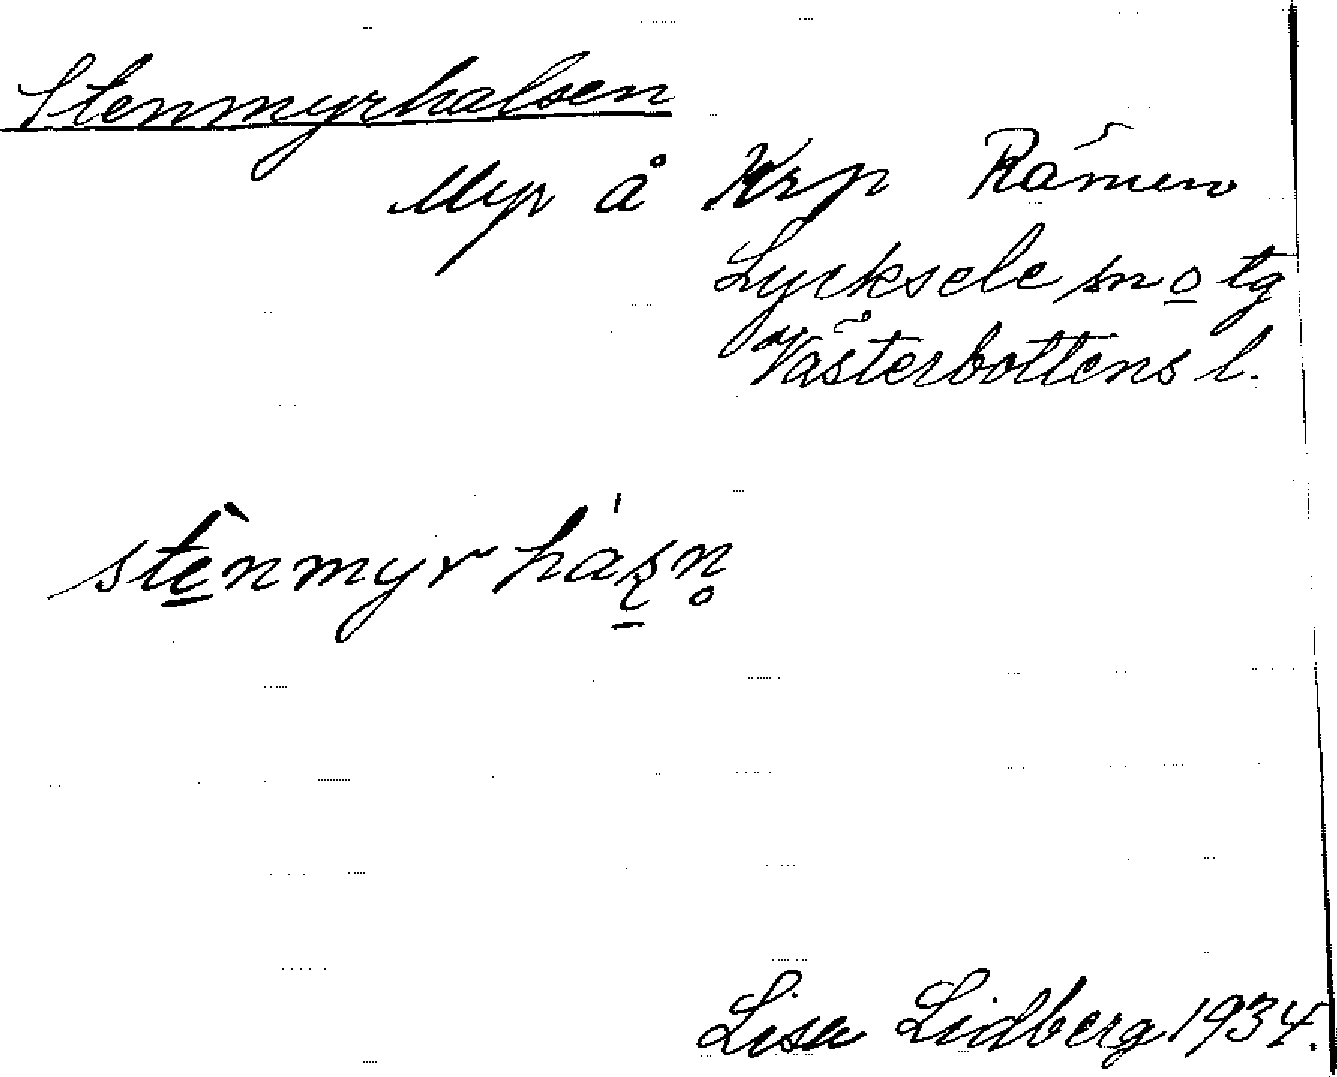 Stenmyrhalsen
Myr å Krp Råmen
Lycksele sn o tg
Västerbottens l.
stènmyrhásn̥
Lisa Lidberg 1934.